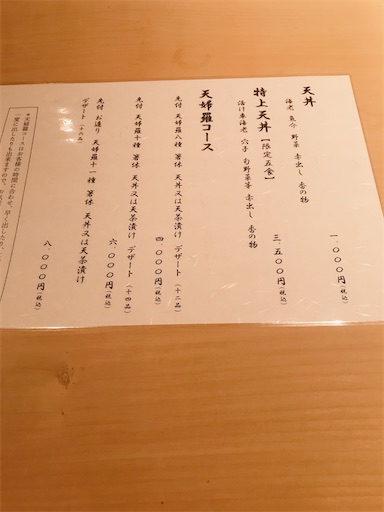 天丼
海老 魚介 野菜 赤出し 香の物
一、〇〇〇円(税込)
特上天丼【限定五食】
活け車海老 穴子 旬野菜等 赤出し 香の物
三、五〇〇円(税込)
天婦羅コース
先付 天婦羅八種 箸休 天丼又は天茶漬け デザート(十二品)
四、〇〇〇円(税込)
先付 天婦羅十種 箸休 天丼又は天茶漬け デザート(十四品)
六、〇〇〇円(税込)
先付 お造り 天婦羅十一種 箸休 天丼又は天茶漬け
デザート(十六品)
八、〇〇〇円(税込)
*天婦羅コースはお客様の時間に合わせ、早く出したり、
一度に出したりも出来ますので、お気